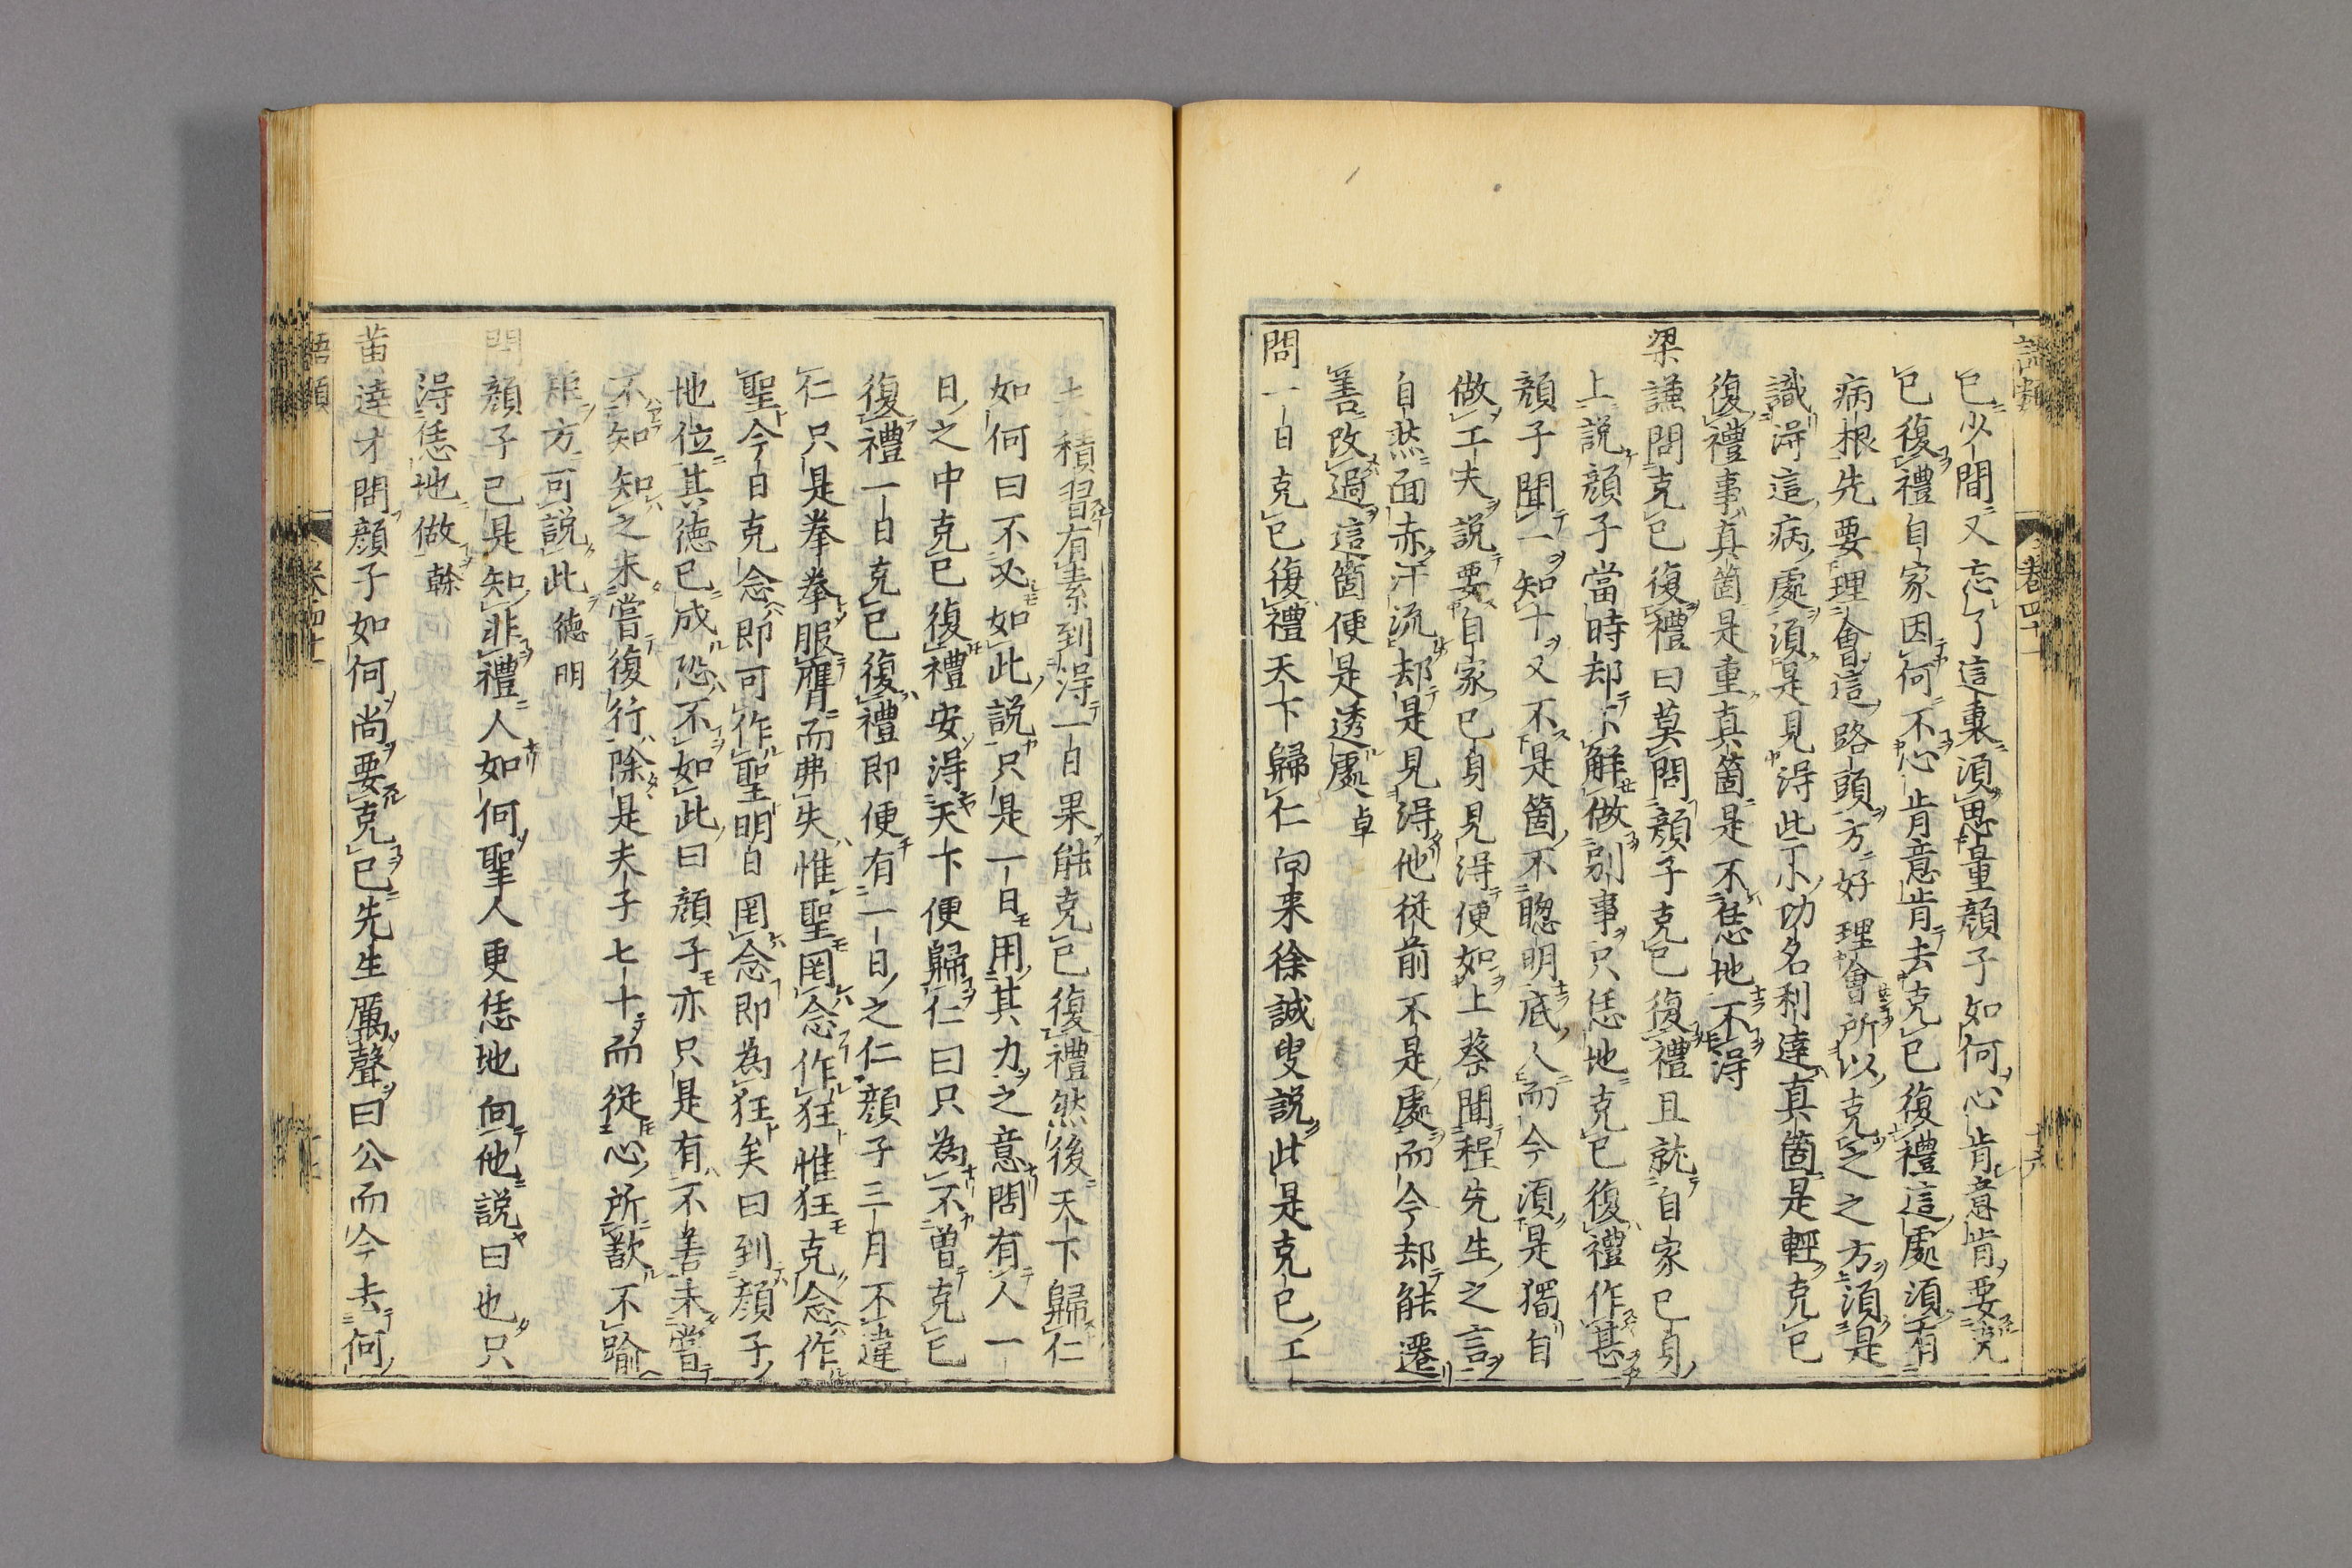 語類
卷四十一
十六
已少間又忘了這裏須思量顔子如何心肯意肯要克
已復禮自家因何不心肯意肯去克已復禮這處須有
病根先要理會這路頭方好理會所以克之之方須是
識得這病處須是見得此小功名利達真箇是輕克已
復禮事真箇是重真箇是不恁地不得
梁謙問克已復禮曰莫問顔子克已復禮且就自家已身
上說顔子當時却不解做別事只恁地克已復禮作甚
顔子聞一知十又不是箇不聰明底人而今須是獨自
做工夫說要自家已身見得便如上蔡聞程先生之言
自然面赤汗流却是見得他從前不是處而今却能遷
善改過這箇便是透處卓
問一日克已復禮天下歸仁向来徐誠叟說此是克已工
夫積習有素到得一日果能克已復禮然後天下歸仁
如何曰不必如此說只是一日用其力之意問有人一
日之中克已復禮安得天下便歸仁曰只為不曽克已
復禮一日克已復禮即便有一日之仁顔子三月不違
仁只是拳拳服膺而弗失惟聖罔念作狂惟狂克念作
聖今日克念即可作聖明日罔念即為狂矣曰到顔子
地位其德已成恐不如此曰顔子亦只是有不善未嘗
不知知之未嘗復行除是夫子七十而從心所欲不踰
矩方可說此德明
問顔子已是知非禮人如何聖人更恁地向他說曰也只
得恁地做榦
黄達才問顔子如何尚要克已先生厲聲曰公而今去何
語類